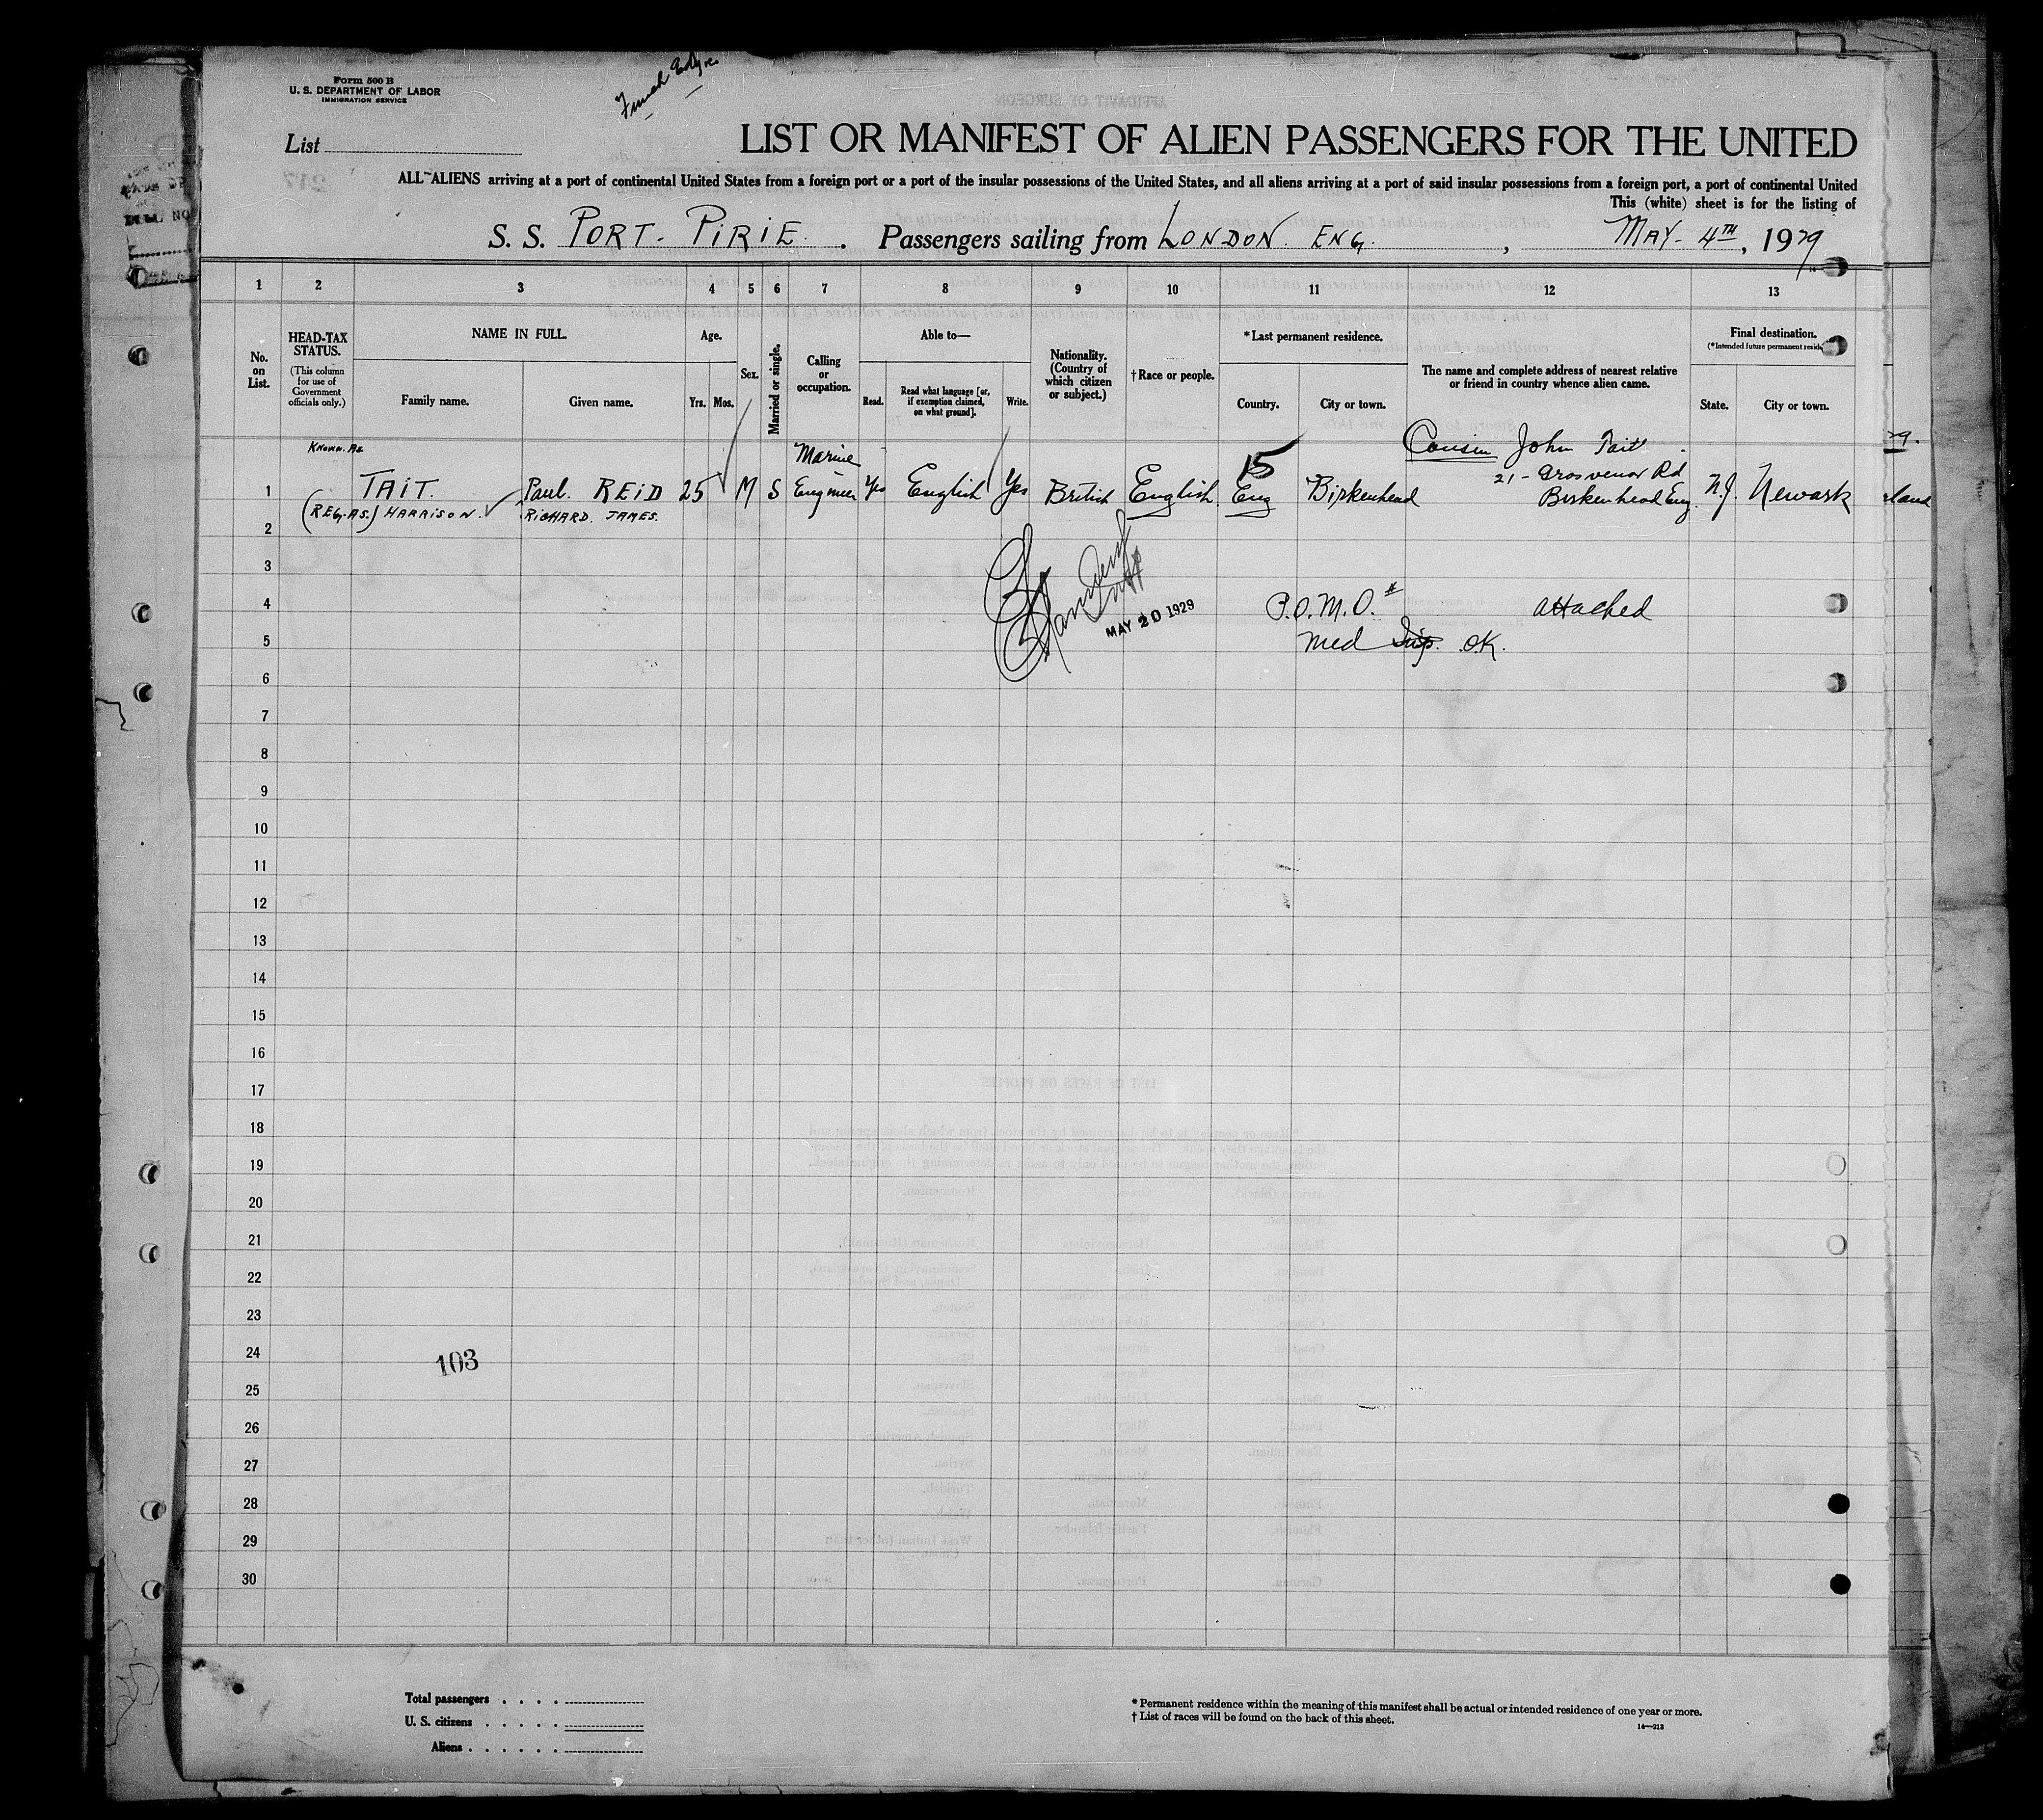 Form 500 B
U. S. DEPARTMENT OF LABOR
IMMIGRATION SERVICE
List
LIST OR MANIFEST OF ALIEN PASSENGERS FOR THE UNITED
ALL ALIENS arriving at a port of continental United States from a foreign port or a port of the insular possessions of the United States, and all aliens arriving at a port of said insular possessions from a foreign port, a port of continental United
This (white) sheet is for the listing of
S. S. PORT. PIRIE. Passengers sailing from LONDON. ENG. , MAY. 4TH, 1929
1 2 3 4 5 6 7 8 9 10 11 12 13
No. on List.
HEAD-TAX STATUS.
(This column for use of Government officials only.)
NAME IN FULL.
Family name.
Given name.
Age.
Yrs. Mos.
Sex.
Married or single.
Calling or occupation.
Able to—
Read.
Read what language [or, if exemption claimed, on what ground].
Write.
Nationality. (Country of which citizen or subject.)
†Race or people.
*Last permanent residence.
Country.
City or town.
The name and complete address of nearest relative or friend in country whence alien came.
Final destination.
(*Intended future permanent resid
State.
City or town.
Known. As.
Marine
15
Cousin John Tait
21 - Grosvenor Rd
1 TAIT. Paul. REID 25 M S Engineer Yes English Yes British English Eng Birkenhead Birkenhead Eng. N.J. Newark
(REG. AS.) HARRISON. RICHARD. JAMES.
2
3
4 P.O.M.O.# attached
MAY 20 1929
5 Med Insp. O.K.
6
7
8
9
10
11
12
13
14
15
16
17
18
19
20
21
22
23
24
103
25
26
27
28
29
30
Total passengers . . . .
U. S. citizens . . . . .
Aliens . . . . . .
* Permanent residence within the meaning of this manifest shall be actual or intended residence of one year or more.
† List of races will be found on the back of this sheet.
14—213